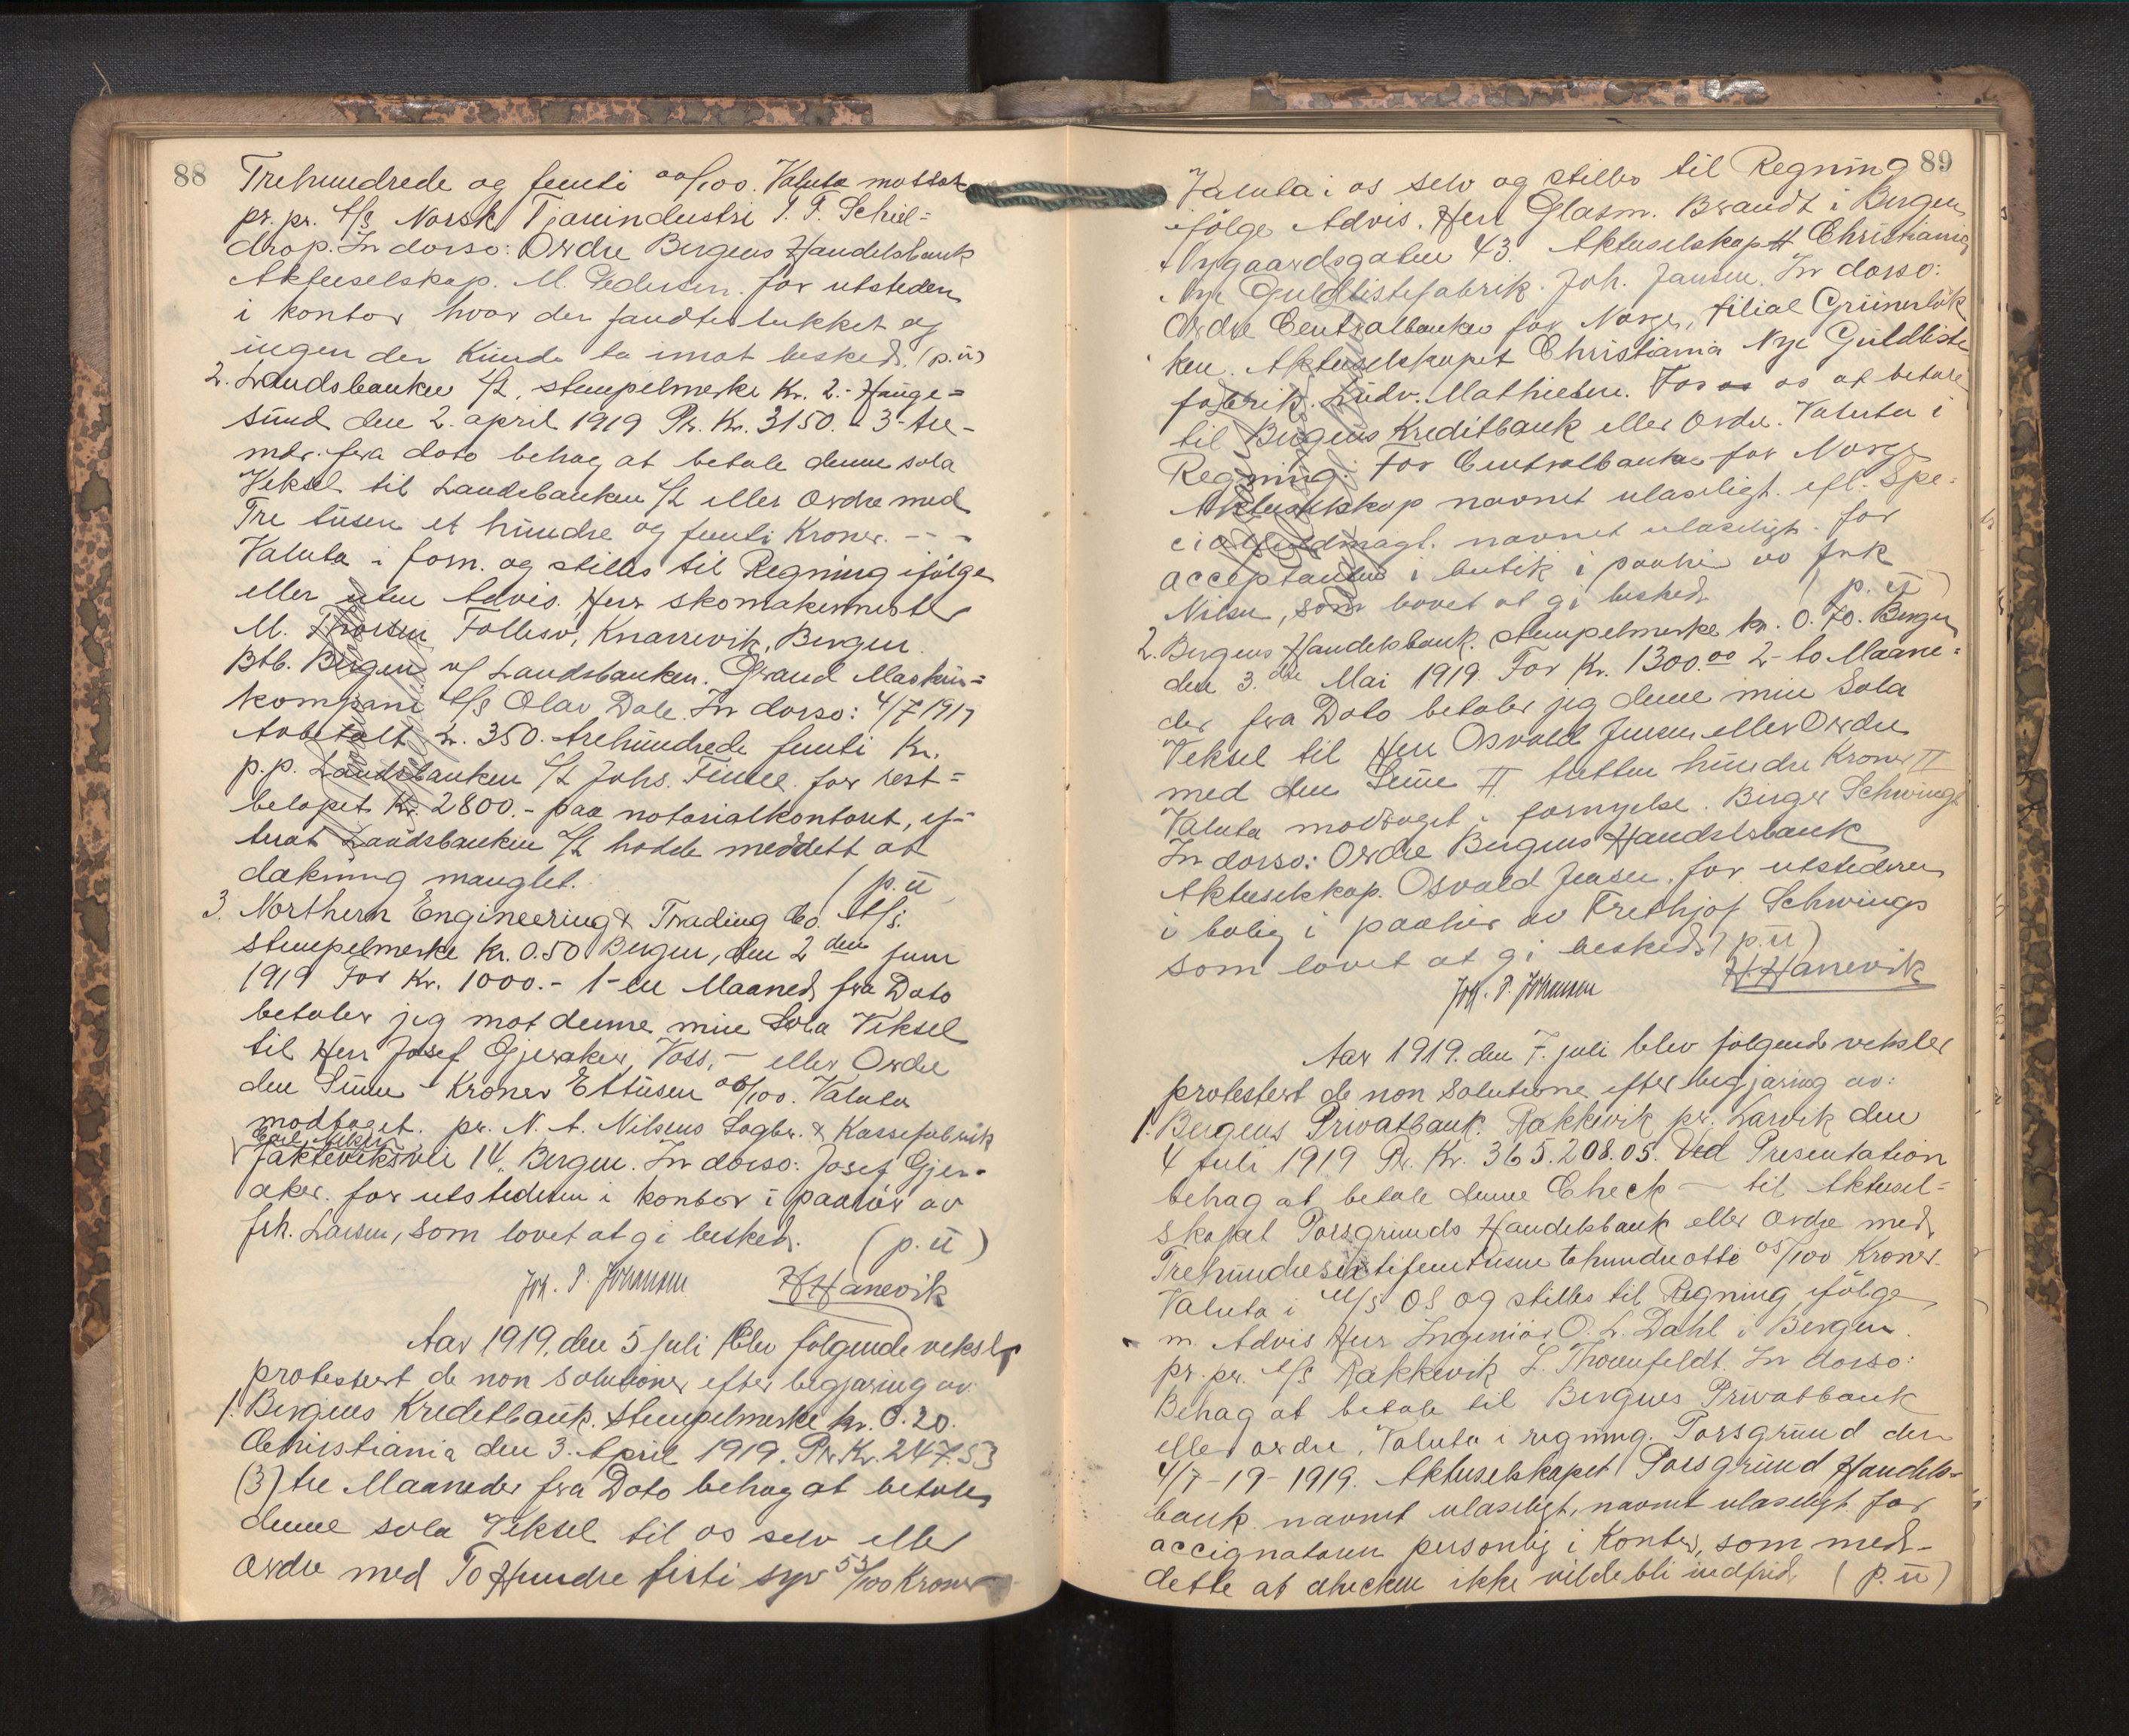 88
Trehundrede og femti 00/100. Valuta mottat
pr. pr. A/S Norsk Tjæreindustri T. F. Schiel=
drop. In dorso: Ordre Bergens Handelsbank
Aktieselskap. M. Pedersen. for utsteden
i kontor hvor der fandtes lukket og
ingen der kunde ta imot besked. (p. u)
2. Landsbanken A/L, stempelmerke Kr. 2.- Hauge=
sund den 2. april 1919 Pr. Kr. 3150. - 3- tre -
mdr. fra dato behag at betale denne sola
Veksel til Landsbanken A/L eller Ordre med
Tre tusen et hundre og femti Kroner. - - -
Valuta i forn. og stilles til Regning ifølge
eller uten Advis. Herr skomakermester
M. Follesø, Knarrevik, Bergen.
Btb. Bergen v/ Landsbanken. Grand Maskin=
kompani A/S Olav Dale. In dorso: 4/7 1919
Avbetalt kr. 350. trehundrede femti Kr.
p.p. Landsbanken A/L Johs. for rest=
beløpet Kr. 2800.- paa notarialkontoret, ef-
terat Landsbanken A/L hadde meddelt at
dækning manglet. (p. u
3. Northern Engineering & Trading Co. A/S.
stempelmerke kr. 0.50 Bergen, den 2 den juni
1919 For Kr. 1000.- 1- en Maaned fra Dato
betaler jeg mot denne min Sola Veksel
til Herr Josef Gjeraker, Voss, - eller Ordre
den Sum - Kroner Ettusen 00/100. Valuta
modtaget. pr. N. A. Nilsens Sagbr. & Kassefabrik
Emil Nilsen
14, Bergen. In dorso: Josef Gjer-
aker. for utstederen i kontor i paahør av
frk. Larsen, som lovet at gi besked. (p. u)
Joh. P. Johansen H Hanevik
Aar 1919, den 5 juli blev følgende veksler
protestert de non solutione efter begjæring av
1. Bergens Kreditbank. Stempelmerke kr. 0.20.
Christiania den 3. April 1919. Pr. Kr. 247.53
(3) tre Maaneder fra Dato behag at betale
denne sola Veksel til os selv eller
Ordre med To Hundre firti syv 53/100 Kroner
89
Valuta i os selv og stilles til Regning
ifølge Advis. Herr Glasm. Brandt i Bergen
Nygaardsgaten 43. Aktieselskapet Christiania
Nye Guldlistefabrik. Joh. Jansen. In dorso:
Ordre Centralbanken for Norge, filial Grünerløk
ken. Aktieselskapet Christiania Nye Guldliste
fabrik. Ludv. Mathiesen. For os at betale
til Bergens Kreditbank eller Ordre. Valuta i
Regning. For Centralbanken for Norge
Aktieselskap navnet ulæseligt. efl. Spe=
cialfuldmagt. navnet ulæseligt. for
acceptanten i butik i paahør av frk
Nilsen, som lovet at gi besked. (p. u)
2. Bergens Handelsbank. stempelmerke kr. 0.70. Bergen
den 3. die Mai 1919. For Kr. 1300.00 2- to Maane=
der fra Dato betaler jeg denne min Sola
Veksel til Herr Osvald Jensen eller Ordre
med den Sum // tretten hundre Kroner //
Valuta modtaget i fornyelse. Birger Schwings
In dorso: Ordre Bergens Handelsbank
Aktieselskap. Osvald Jensen. for utstederen
i bolig i paahør av Frethjof Schwings
som lovet at gi besked. (p. u)
Joh. P. Johansen H Hanevik
Aar 1919. den 7. juli blev følgende veksler
protestert de non Solutione efter begjæring av:
1. Bergens Privatbank. Rakkevik pr. Larvik den
4 Juli 1919 Pr. Kr. 365.208.05. Ved Presentation
behag at betale denne Check - til Aktiesel=
skapet Porsgrunds Handelsbank eller Ordre med
Trehundresekstifemtusen tohundreotte 05/100 Kroner.
Valuta i OS og stilles til Regning ifølge
m. Advis Herr Ingeniør O. L. Dahl i Bergen.
pr. pr. A/S Rakkevik L. Thornfeldt. In dorso:
Behag at betale til Bergens Privatbank
eller ordre. Valuta i regning. Porsgrund den
4/7-19-1919. Aktieselskapet Porsgrund Handels=
bank navnet ulæseligt, navnet ulæseligt for
accignatann personlig i Kontor, som med-
delte at checken ikke vilde bli indfrid (p. u)